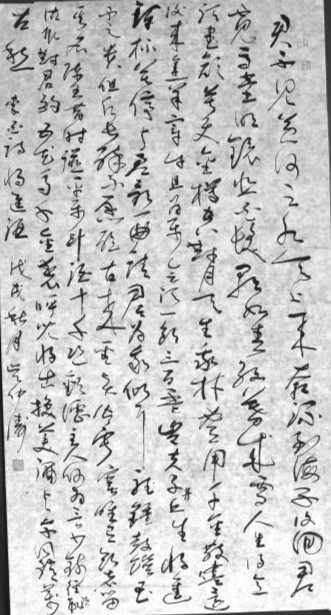 君不見黃河之水天上來奔流到海不復回君
不見高堂明鏡悲白髮朝如青絲暮成雪人生得意
須盡歡莫使金樽空對月天生我材必有用千金散盡還
復來烹羊宰牛且為樂會須一飲三百杯岑夫子丹丘生將進
酒杯莫停與君歌一曲請君為我傾耳聽鐘鼓饌玉
不足貴但願長醉不願醒古來聖賢皆寂寞惟有飲者留
其名陳王昔時宴平樂斗酒十千恣歡謔主人何為言少錢徑須
沽取對君酌五花馬千金裘呼兒將出換美酒與爾同銷萬
古愁 李白詩將進酒 戊戌秋月